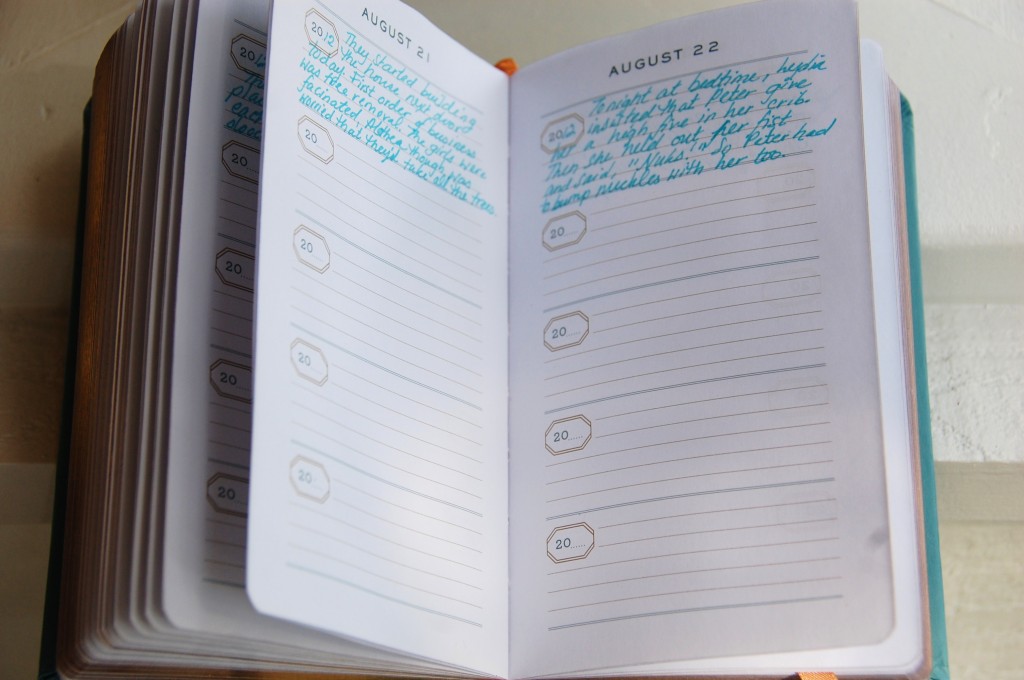 AUGUST 21
2012
They started building
the house next door
today. First order of business
was tree removal. The girls were
facinated, Althea though was
worried that they'd take all the trees.
20
20
20
20
AUGUST 22
2012
Tonight at bedtime, Lydia
insisted that Peter give
her a high five in her crib.
Then she held out her fist
and said, "Nuks." So Peter had
to bump knuckles with her too.
20
20
20
20
20
20
20
20
20